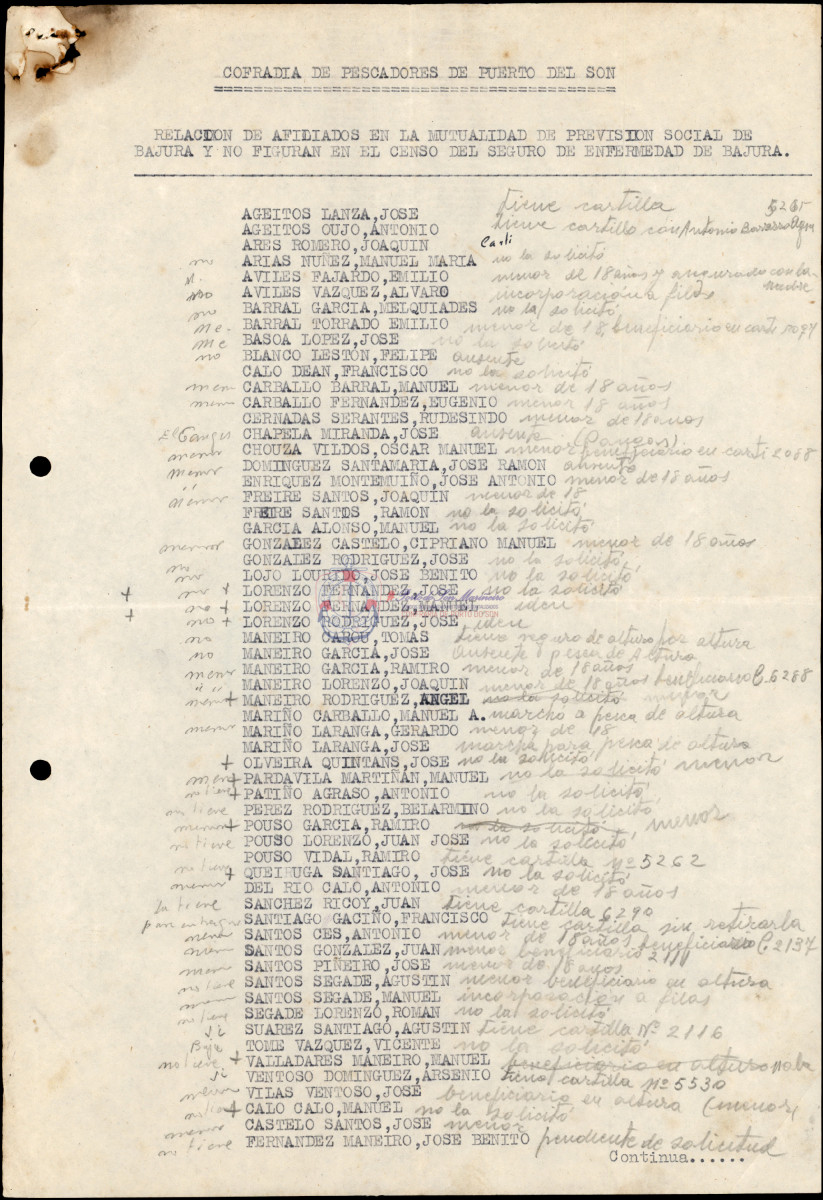 COFRADIA DE PESCADORES DE PUERTO DEL SON
RELACION DE AFILIADOS EN LA MUTUALIDAD DE PREVISION SOCIAL DE
BAJURA Y NO FIGURAN EN EL CENSO DEL SEGURO DE ENFERMEDAD DE BAJURA.
AGEITOS LANZA,JOSE tiene cartilla 5265
AGEITOS OUJO,ANTONIO tiene cartilla con Antonio
ARES ROMERO,JOAQUIN Carti
no ARIAS NUÑEZ,MANUEL MARIA no la solicitó
AVILES FAJARDO,EMILIO menor de 18 años y asegurado con la madre
no AVILES VAZQUEZ,ALVARO incorporación a filas
no BARRAL GARCIA,MELQUIADES no la solicitó
me. BARRAL TORRADO EMILIO menor de 18, beneficiario en carti
me BASOA LOPEZ,JOSE no la solicitó
no BLANCO LESTON,FELIPE ausente
CALO DEAN,FRANCISCO no la solicitó
men CARBALLO BARRAL,MANUEL menor de 18 años
menor CARBALLO FERNANDEZ,EUGENIO menor 18 años
CERNADAS SERANTES,RUDESINDO menor de 18 anos
CHAPELA MIRANDA,JOSE ausente
menor CHOUZA VILDOS,OSCAR MANUEL menor beneficiario en carti 2088
menor DOMINGUEZ SANTAMARIA,JOSE RAMON ausente
" ENRIQUEZ MONTEMUIÑO,JOSE ANTONIO menor de 18 años
menor FREIRE SANTOS,JOAQUIN menor de 18
FREIRE SANTOS ,RAMON no la solicitó
GARCIA ALONSO,MANUEL no la solicitó
menor GONZALEZ CASTELO,CIPRIANO MANUEL menor de 18 años
no GONZALEZ RODRIGUEZ,JOSE no la solicitó
no LOJO LOURIDO,JOSE BENITO no la solicitó
+ no + LORENZO FERNANDEZ,JOSE no la solicitó
+ no + LORENZO FERNANDEZ,MANUEL idem
no + LORENZO RODRIGUEZ,JOSE idem
no MANEIRO CAROU,TOMAS tiene seguro de altura por altura
no MANEIRO GARCIA,JOSE Ausente pesca de Altura
menor MANEIRO GARCIA,RAMIRO menor de 18 años
" " MANEIRO LORENZO,JOAQUIN menor de 18 años beneficiario C.6288
menor + MANEIRO RODRIGUEZ,ANGEL no la solicitó menor
MARIÑO CARBALLO,MANUEL A. marcho a pesca de altura
menor MARIÑO LARANGA,GERARDO menor de 18
MARIÑO LARANGA,JOSE marcha para pesca de altura
+ OLVEIRA QUINTANS,JOSE no la solicitó
men + PARDAVILA MARTIÑAN,MANUEL no la solicitó menor
no tiene + PATIÑO AGRASO,ANTONIO no la solicitó
no tiene PEREZ RODRIGUEZ,BELARMINO no la solicitó
menor + POUSO GARCIA,RAMIRO no la solicitó, menor
no tiene POUSO LORENZO,JUAN JOSE no la solicitó
POUSO VIDAL,RAMIRO tiene cartilla nº 5262
no tiene + QUEIRUGA SANTIAGO, JOSE no la solicitó
menor DEL RIO CALO,ANTONIO menor de 18 años
la tiene SANCHEZ RICOY,JUAN tiene cartilla 6290
para entregar SANTIAGO GACIÑO,FRANCISCO tiene cartilla sin retirarla
menor SANTOS CES,ANTONIO menor de 18 años beneficiario C.2137
menor SANTOS GONZALEZ,JUAN menor beneficiario
menor SANTOS PIÑEIRO,JOSE menor de 18 años
no tiene SANTOS SEGADE,AGUSTIN menor beneficiario en altura
menor SANTOS SEGADE,MANUEL incorporación a filas
no tiene SEGADE LORENZO,ROMAN no la solicitó
si SUAREZ SANTIAGO,AGUSTIN tiene cartilla Nº 2116
Baja TOME VAZQUEZ,VICENTE no la solicitó
no tiene + VALLADARES MANEIRO,MANUEL beneficiario en altura
si VENTOSO DOMINGUEZ,ARSENIO tiene cartilla nº 5530
menor VILAS VENTOSO,JOSE beneficiario en altura (menor)
no tiene + CALO CALO,MANUEL no la solicitó
menor CASTELO SANTOS,JOSE menor
no tiene FERNANDEZ MANEIRO,JOSE BENITO pendiente de solicitud
Continua......